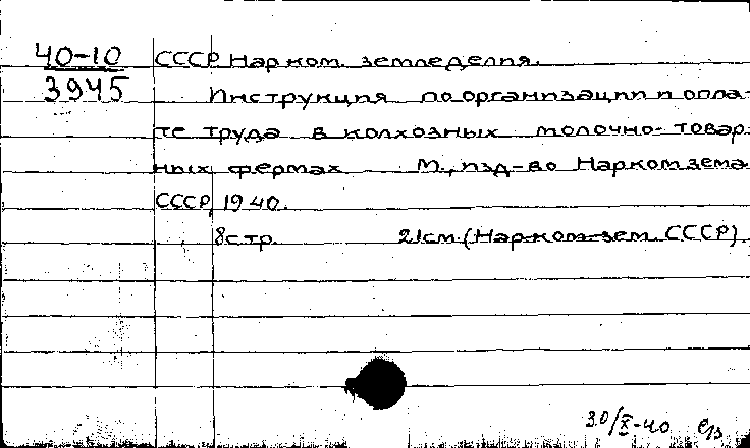 40-10 СССР Нар.ком. земледелия.
3945 Инструкция по организации и опла-
те труда в колхозных молочно-товар-
ных фермах М., изд-во Наркомзема
СССР, 1940.
8 стр. 21 см. (Нар.ком-зем. СССР).
30/X-40